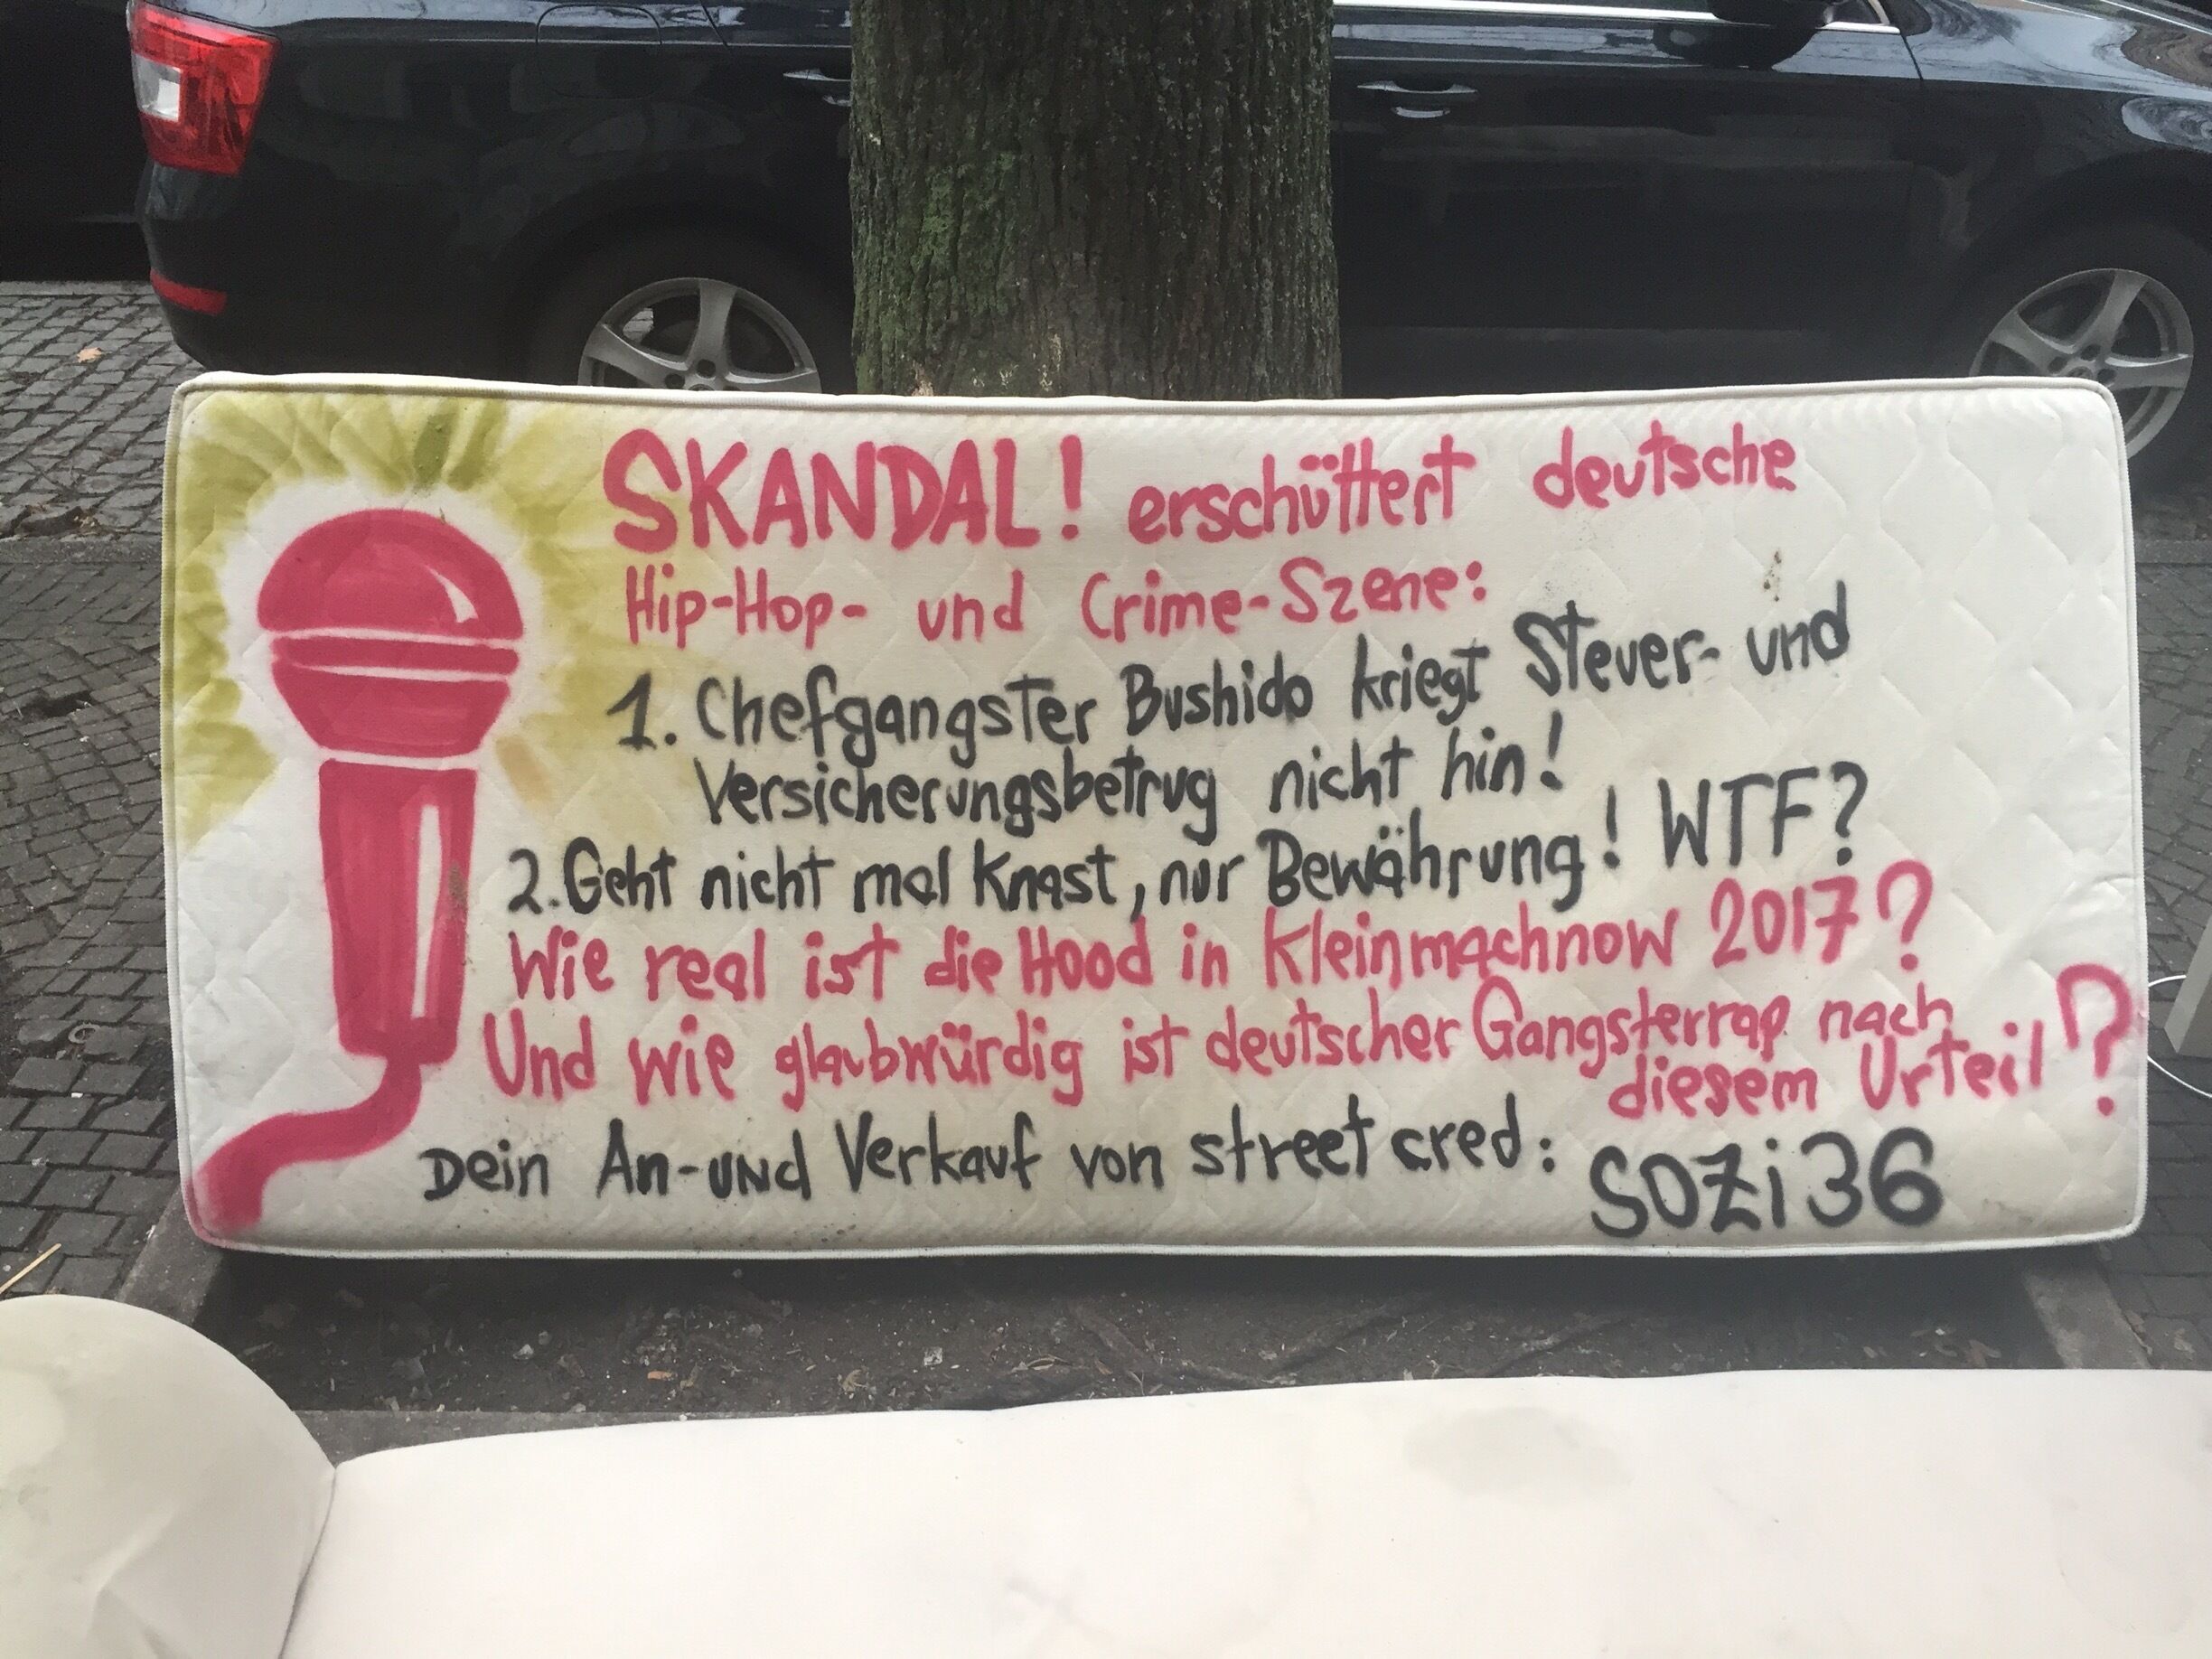 SKANDAL! erschüttert deutsche
Hip-Hop- und Crime-Szene:
1. Chefgangster Bushido kriegt Steuer- und
Versicherungsbetrug nicht hin!
2. Geht nicht mal Knast, nur Bewährung! WTF?
Wie real ist die Hood in Kleinmachnow 2017?
Und wie glaubwürdig ist deutscher Gangsterrap nach
diesem Urteil?
Dein An-und Verkauf von street cred: SOZi36